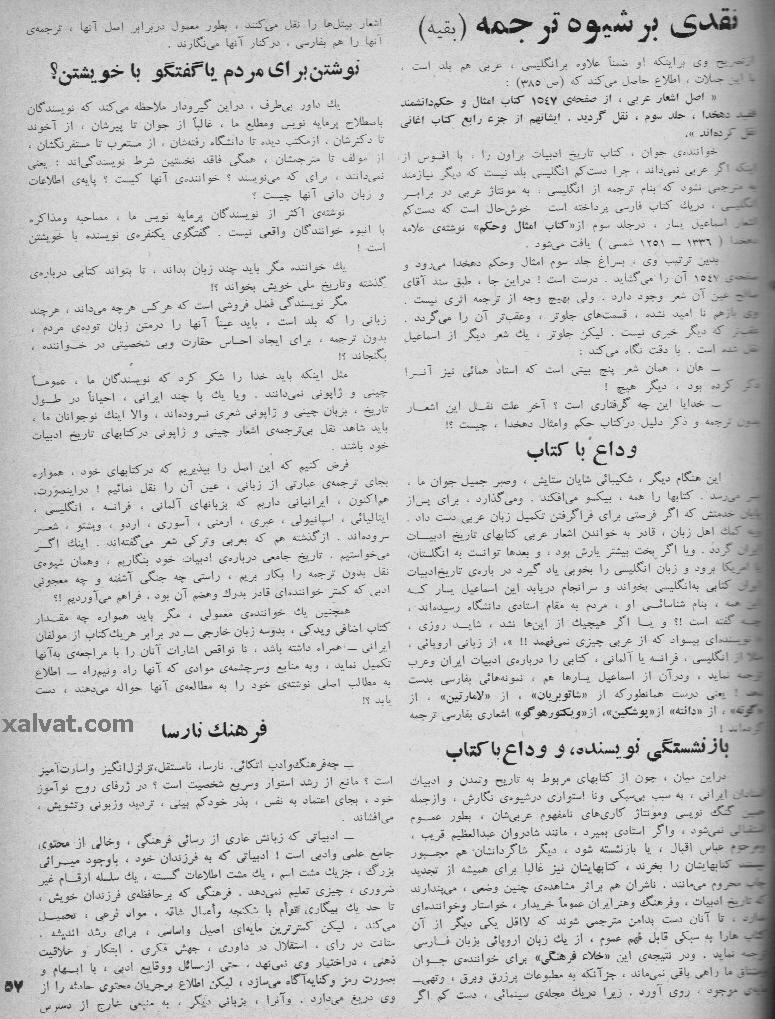 نقدی بر شیوه ترجمه (بقیه)
ازتصریح وی براینکه او ضمناً علاوه برانگلیسی ، عربی هم بلد است ،
با این جملات ، اطلاع حاصل می‌کند که (ص ۳۸۵) :
« اصل اشعار عربی ، از صفحه‌ی ۱۵۴۷ کتاب امثال و حکم‌دانشمند
فقید دهخدا ، جلد سوم ، نقل گردید . ایشانهم از جزء رابع کتاب اغانی
نقل کرده‌اند ».
خواننده‌ی جوان ، کتاب تاریخ ادبیات براون را ، با افسوس از
اینکه اگر عربی نمی‌داند ، چرا دست‌کم انگلیسی بلد نیست که دیگر نیازمند
به مترجمی نشود که بنام ترجمه از انگلیسی ، به مونتاژ عربی در برابر
انگلیسی ، دریك کتاب فارسی پرداخته است خوش‌حال است که دست‌کم
اشعار اسماعیل یسار ، درجلد سوم از«کتاب امثال وحکم» نوشته‌ی علامه
دهخدا ( ۱۳۳۶ – ۱۲۵۱ شمسی ) یافت می‌شود .
بدین ترتیب وی ، بسراغ جلد سوم امثال وحکم دهخدا می‌رود و
صفحه‌ی ۱۵۴۷ آن را می‌گشاید . درست است ! دراین جا ، طبق سند آقای
صالح عین آن شعر وجود دارد . ولی بهیچ وجه از ترجمه اثری نیست .
وی بازهم نا امید نشده ، قسمت‌های جلوتر ، وعقب‌تر آن را می‌گردد .
عقب‌تر که دیگر خبری نیست . لیکن جلوتر ، یك شعر دیگر از اسماعیل
نقل شده است . با دقت نگاه می‌کند :
– هان ، همان شعر پنج بیتی است که استاد همائی نیز آنـرا
ذکر کرده بود ، دیگر هیچ !
– خدایا این چه گرفتاری است ؟ آخر علت نقـل این اشعـار
بدون ترجمه و ذکر دلیل درکتاب حکم وامثال دهخدا ، چیست ؟!
وداع با کتاب
این هنگام دیگر ، شکیبائی شایان ستایش ، وصبر جمیل جوان ما ،
بسر می‌رسد . کتابها را همه ، بیکسو می‌افکند . ومی‌گذارد . برای پس‌از
پایان خدمتش که اگر فرصتی برای فراگرفتن تکمیل زبان عربی دست داد .
وبه کمك اهل زبان ، قادر به خواندن اشعار عربی کتابهای تاریخ ادبیـات
ایران گردد . ویا اگر بخت بیشتر یارش بود ، و بعدها توانست به انگلستان،
یا امریکا برود و زبان انگلیسی را بخوبی یاد گیرد در باره‌ی تاریخ‌ادبیات
ایران کتابی به‌انگلیسی بخواند و سرانجام دریابد این اسماعیل یسار کـه
این همه ، بنام شناسائـی او ، مردم به مقام استادی دانشگاه رسیده‌اند ،
چه گفته است !؟ و یـا اگر هیچیك از این‌ها نشد ، شاید روزی ،
نویسنده‌ای بیسواد که از عربی چیزی نمی‌فهمد !! »، از زبانی اروپائی ،
مثلا از انگلیسی ، فرانسه یا آلمانی ، کتابی را درباره‌ی ادبیات ایران وعرب
ترجمه نماید ، ودرآن از اسماعیل یسارها هم ، نمونه‌هائی بفارسی بدست
دهد ! یعنی درست همانطورکه از «شاتوبریان» ، از «لامارتین» ، از
«گوته» ، از «دانته» از«پوشکین»، از«ویکتورهوگو» اشعاری بفارسی ترجمه
کرده‌اند !
بازنشستگی نویسنده، و وداع با کتاب
دراین میان ، چون از کتابهای مربوط به تاریخ وتمدن و ادبیات
استادان ایرانی ، به سبب بی‌سبکی ونا استواری درشیوه‌ی نگارش ، وازجمله
همین گنگ نویسی ومونتاژ کاری‌های نامفهوم عربی‌شان ، بطور عمـوم
استقبالی نمی‌شود ، واگر استادی بمیرد ، مانند شادروان عبدالعظیم قریب ،
ومرحوم عباس اقبال ، یا بازنشسته شود ، دیگر شاگردانشان هم مجبـور
نیستند کتابهایشان را بخرند ، کتابهایشان نیز غالبا برای همیشه از تجدید
چاپ محروم می‌مانند . ناشران هم براثر مشاهده‌ی چنین وضعی ، می‌پندارند
که تاریخ ادبیات ، وفرهنگ وهنرایران عموماً خریدار ، خواستار وخواننده‌ای
ندارد ، تا آنان دست بدامن مترجمی شوند که لااقل یکی دیگر از آن
کتاب هارا به سبکی قابل فهم عموم ، از یك زبان اروپائی بزبان فارسـی
ترجمه نماید . ودر نتیجه‌ی این «خلاء فرهنگی» برای خواننده‌ی جـوان
ومشتاق ما راهی باقی نمی‌ماند ، جزآنکه به مطبوعات پرزرق وبرق ، وتهی–
موجود ، روی آورد . زیرا دریك مجله‌ی سینمائی ، دست کم اگر
اشعار بیتل‌ها را نقل می‌کنند ، بطور معمول دربرابر اصل آنها ، ترجمه‌ی
آنها را هم بفارسی ، درکنار آنها می‌نگارند .
نوشتن برای مردم یا گفتگو با خویشتن؟
یك داور بی‌طرف ، دراین گیرودار ملاحظه می‌کند که نویسندگان
باصطلاح پرمایه نویس ومطلع ما ، غالباً از جوان تا پیرشان ، از آخوند
تا دکترشان ، ازمکتب دیده تا دانشگاه رفته‌شان ، از مستعرب تا مستفرنگشان ،
از مولف تا مترجمشان ، همگی فاقد نخستین شرط نویسندگی‌اند : یعنی
نمی‌دانند ، برای که می‌نویسند ؟ خواننده‌ی آنها کیست ؟ پایه‌ی اطلاعات
و زبان دانی آنها چیست ؟
نوشته‌ی اکثر از نویسندگان پرمایه نویس ما ، مصاحبه ومذاکره
با انبوه خوانندگان واقعی نیست . گفتگوی یکنفره‌ی نویسنده با خویشتن
است !
یك خواننده مگر باید چند زبان بداند ، تا بتواند کتابی درباره‌ی
گذشته وتاریخ ملی خویش بخواند ؟!
مگر نویسندگی فضل فروشی است که هرکس هرچه می‌داند ، هرچند
زبانی را که بلد است ، باید عیناً آنها را درمتن زبان توده‌ی مردم ،
بدون ترجمه ، برای ایجاد احساس حقارت وبی شخصیتی در خـواننده ،
بگنجاند ؟!
مثل اینکه باید خدا را شکر کرد که نویسندگان ما ، عمومـاً
چینی و ژاپونی نمی‌دانند . ویا یك یا چند ایرانی ، احیاناً در طـول
تاریخ ، بزبان چینی و ژاپونی شعری نسروده‌اند ، والا اینك نوجوانان ما ،
باید شاهد نقل بی‌ترجمه‌ی اشعار چینی و ژاپونی درکتابهای تاریخ ادبیات
خود باشند .
فرض کنیم که این اصل را بپذیریم که درکتابهای خود ، همواره
بجای ترجمه‌ی عبارتی از زبانی ، عین آن را نقل نمائیم ! دراینصورت،
هم‌اکنون ، ایرانیانی داریم که بزبانهای آلمانی ، فرانسه ، انگلیسی ،
ایتالیائی ، اسپانیولی ، عبری ، ارمنی ، آسوری ، اردو ، وپشتو ، شعـر
سروده‌اند . ازگذشته هم که بعربی وترکی شعر می‌گفته‌اند . اینك اگـر
می‌خواستیم . تاریخ جامعی درباره‌ی ادبیات خود بنگاریم ، وهمان شیوه‌ی
نقل بدون ترجمه را بکار بریم ، راستی چه جنگی آشفته و چه معجونی
ادبی که کمتر خواننده‌ای قادر بدرك وهضم آن بود . فراهم می‌آوردیم !؟
همچنین یك خواننده‌ی معمولی ، مگر باید همواره چه مقـدار
کتاب اضافی ویدکی ، بدوسه زبان خارجی – در برابر هریك‌کتاب از مولفان
ایرانی – همراه داشته باشد ، تا نواقص اشارات آنان را با مراجعه‌ی به‌آنها
تکمیل نماید ، وبه منابع وسرچشمه‌ی موادی که آنها راه ونیم‌راه – اطلاع
به مطالب اصلی نوشته‌ی خود را به مطالعه‌ی آنها حواله می‌دهند ، دست
یابد ؟!
xalvat.com
فرهنك نارسا
– چه‌فرهنگ‌وادب اتکائی. نارسا، نامستقل،تزلزل‌انگیز واسارت‌آمیز
است ؟ مانع از رشد استوار وسریع شخصیت است ؟ در ژرفای روح نوآموز
خود ، بجای اعتماد به نفس ، بذر خودکم بینی ، تردید وزبونی وتشویش ،
می‌افشاند .
– ادبیاتی که زبانش عاری از رسائی فرهنگی ، وخالی از محتوی
جامع علمی وادبی است ! ادبیاتی که به فرزندان خود ، باوجود میـراثی
بزرگ ، جزیك مشت اسم ، یك مشت اطلاعات گسسته ، یك سلسله ارقـام غیر
ضروری ، چیزی تعلیم نمی‌دهد . فرهنگی که برحافظه‌ی فرزندان خویش ،
تا حد یك بیگاری توأم با شکنجه وأعمال شاقه ، مواد فرعی ، تحمیـل
می‌کند ، لیکن کمترترین مایه‌ای اصیل واساسی ، برای رشد اندیشه ،
متانت در رای ، استقلال در داوری ، جهش فکری . ابتکار و خلاقیت
ذهنی ، دراختیار وی نمی‌نهد . حتی ازمسائل ووقایع ادبی ، با ابهـام و
بصورت رمز وکنایه‌آگاه می‌سازد ، لیکن اطلاع برجریان محتوی حادثه را از
وی دریغ می‌دارد . وآنرا ، بزبانی دیگر ، به منبعی خارج از دسترس
۵۷